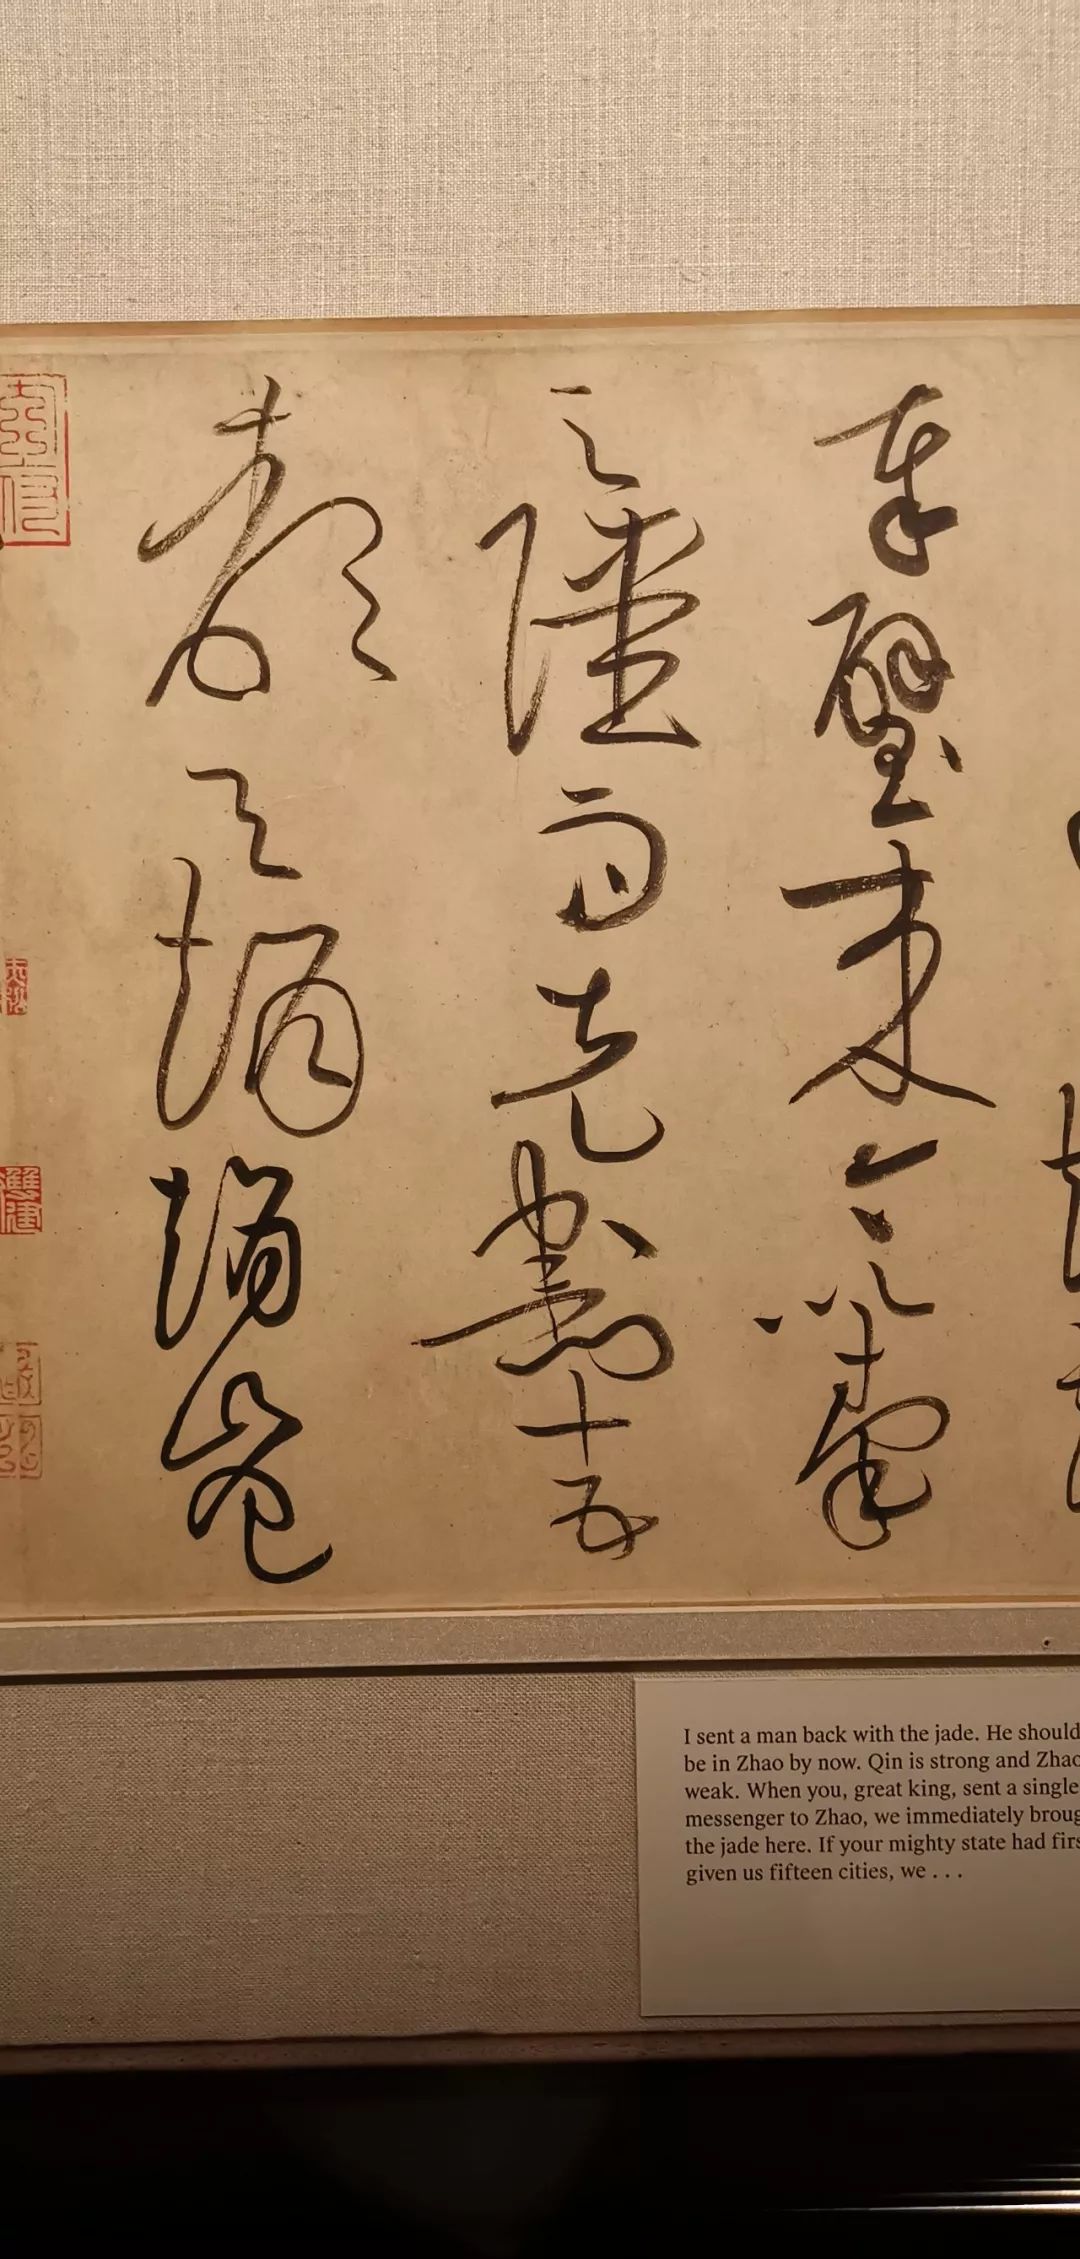 奉璧來今以秦
之彊而先割十五
都予趙趙豈
I sent a man back with the jade. He should
be in Zhao by now. Qin is strong and Zhao
weak. When you, great king, sent a single
messenger to Zhao, we immediately broug
the jade here. If your mighty state had firs
given us fifteen cities, we . . .